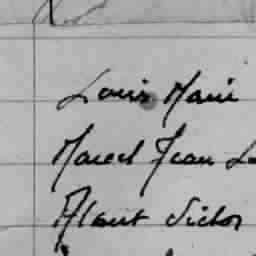 Louis Marie
Marcel Jean
Albert Victor